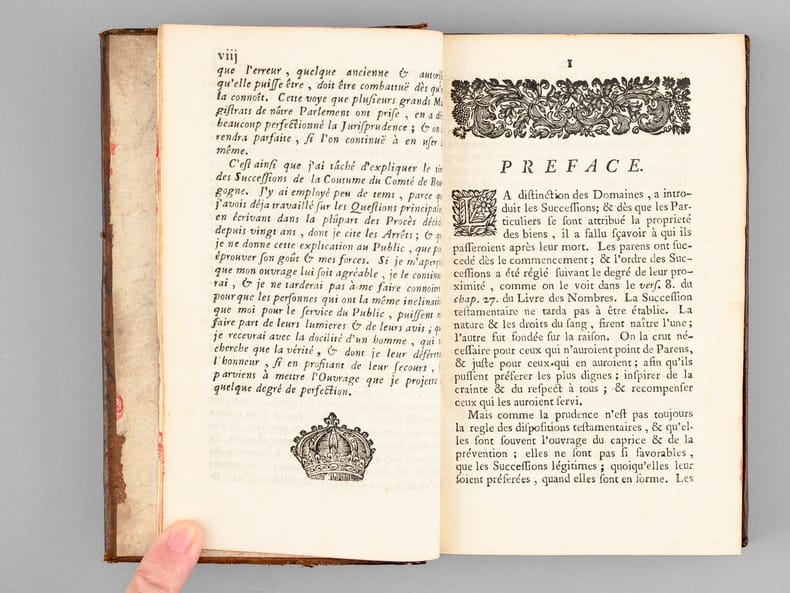 viij
que l'erreur, quelque ancienne & 
qu'elle puisse être, doit être combattuë dès
la connoît. Cette voye que plusieurs grands
gistrats de nôtre Parlement ont prise, en a
beaucoup perfectionné la Jurisprudence; &
rendra parfaite, si l'on continuë à en user
même.
C'est ainsi que j'ai tâché d'expliquer le
des Successions de la Coutume du Comté de
gogne. J'y ai employé peu de tems, parce
j'avois déja travaillé sur les Questions principale
en écrivant dans la plûpart des Procès
depuis vingt ans, dont je cite les Arrêts; &
je ne donne cette explication au Public, que
éprouver son goût & mes forces. Si je
que mon ouvrage lui soit agréable, je le
rai, & je ne tarderai pas à me faire
pour que les personnes qui ont la même
que moi pour le service du Public, puissent
faire part de leurs lumieres & de leurs avis;
je recevrai avec la docilité d'un homme, qui
cherche que la vérité, & dont je leur
l'honneur, si en profitant de leur secours,
parviens à mettre l'Ouvrage que je projette
quelque degré de perfection.
I
PREFACE.
LA distinction des Domaines, a intro-
duit les Successions; & dès que les Par-
ticuliers se sont attribué la proprieté
des biens, il a fallu sçavoir à qui ils
passeroient après leur mort. Les parens ont suc-
cedé dès le commencement; & l'ordre des Suc-
cessions a été réglé suivant le degré de leur pro-
ximité, comme on le voit dans le vers. 8. du
chap. 27. du Livre des Nombres. La Succession
testamentaire ne tarda pas à être établie. La
nature & les droits du sang, firent naître l'une;
l'autre fut fondée sur la raison. On la crut né-
cessaire pour ceux qui n'auroient point de Parens,
& juste pour ceux-qui en auroient; afin qu'ils
pussent préferer les plus dignes; inspirer de la
crainte & du respect à tous; & recompenser
ceux qui les auroient servi.
Mais comme la prudence n'est pas toujours
la regle des dispositions testamentaires, & qu'el-
les sont souvent l'ouvrage du caprice & de la
prévention; elles ne sont pas si favorables,
que les Successions légitimes; quoiqu'elles leur
soient préferées, quand elles sont en forme. Les